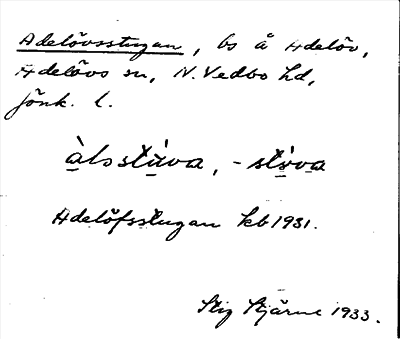 Adelövsstugan, bs å Adelöv,
Adelövs sn, N. Vedbo hd,
Jönk. l.
àlsstáva, -stáva
Adelöfsstugan kb 1931.
Stig Stjärne 1933.